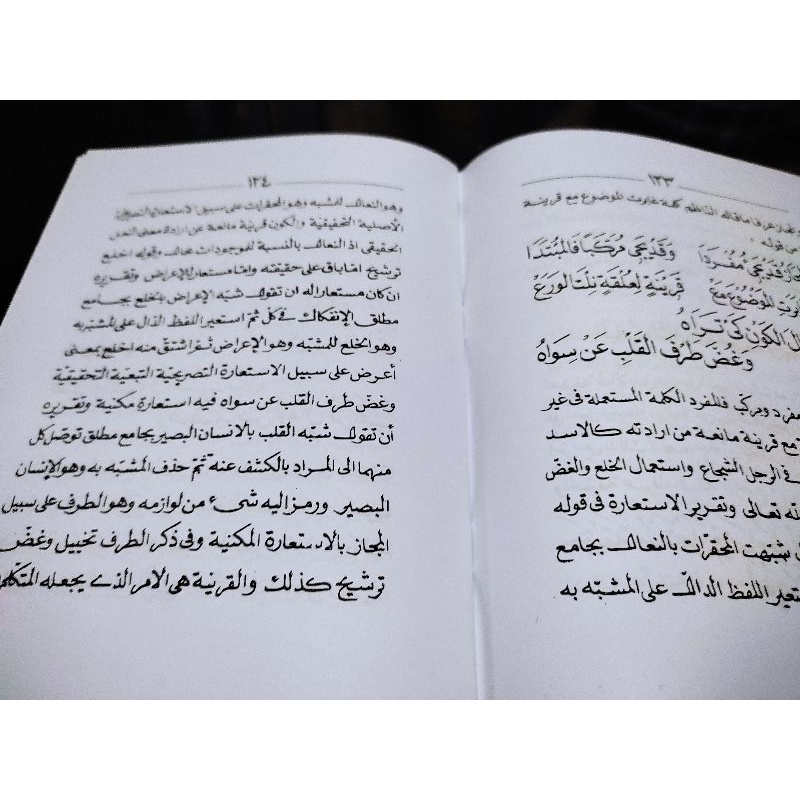 ١٣٣
ما قاله الناظم كلمة غايرت الموضوع مع قرينة
قوله
قد يجي مفردا وقد يجي مركبا فالمبتدا
الموضوع مع قرينة لعلقة نلت الورع
الكون كي تراه
وغض طرف القلب عن سواه
مفرد ومركب فالمفرد الكلمة المستعملة في غير
مع قرينة مانعة من ارادته كالاسد
في الرجل الشجاع واستعمال الخلع والغض
الله تعالى وتقرير الاستعارة في قوله
شبهت المحقرات بالنعال بجامع
اللفظ الدال على المشبه به
١٣٤
وهو النعال للمشبه وهو المحقرات على سبيل الاستعارة
الأصلية التحقيقية والكون قرينة مانعة عن ارادة معنى النعل
الحقيقي اذ النعال بالنسبة للموجودات محال وقوله اخلع
ترشيح اما باق على حقيقته واما مستعار للإعراض وتقريره
ان كان مستعارا له ان تقول شبه الإعراض بالخلع بجامع
مطلق الإنفكاك في كل ثم استعير اللفظ الدال على المشبه به
وهو الخلع للمشبه وهو الإعراض ثم اشتق منه اخلع بمعنى
أعرض على سبيل الاستعارة التصريحية التبعية التحقيقية
وغض طرف القلب عن سواه فيه استعارة مكنية وتقريره
أن تقول شبه القلب بالانسان البصير بجامع مطلق توصل كل
منهما الى المراد بالكشف عنه ثم حذف المشبه به وهو الإنسان
البصير ورمز اليه شيء من لوازمه وهو الطرف على سبيل
المجاز بالاستعارة المكنية وفي ذكر الطرف تخييل وغض
ترشيح كذلك والقرينة هي الامر الذي يجعله المتكلم